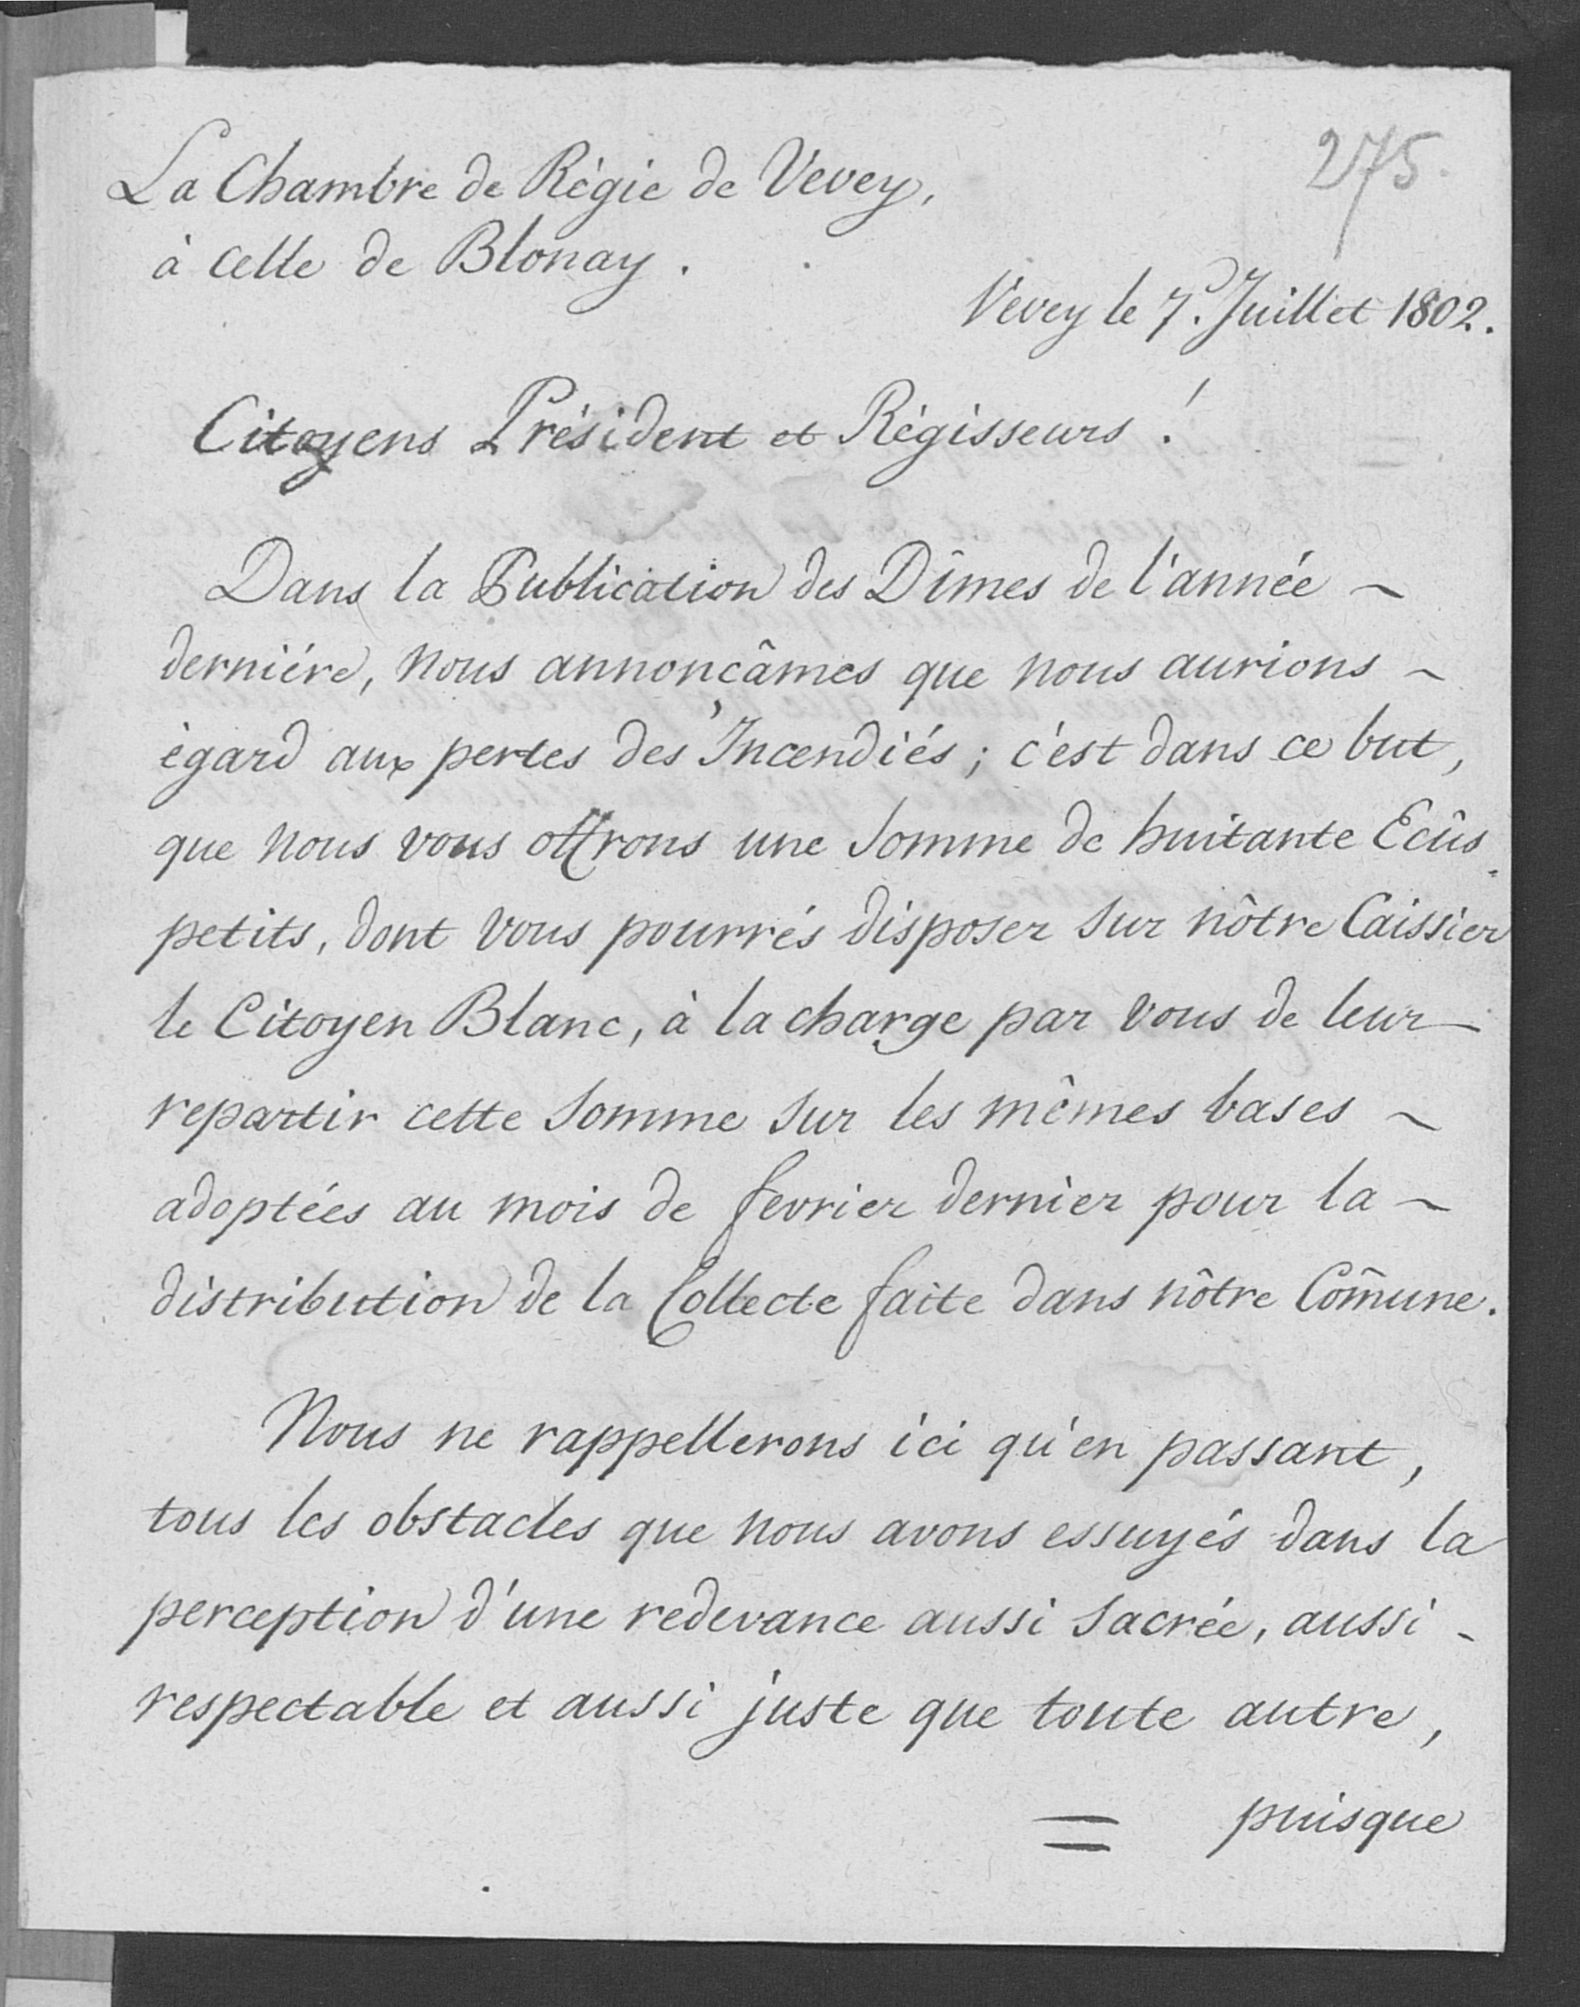 275.
La Chambre de Régie de Vevey,
à celle de Blonay.
Vevey le 7. Juillet 1802.
Citoyens Président et Régisseurs !
Dans la Publication des Dîmes de l'année ~
derniére, nous annonçâmes que nous aurions ~
égard aux pertes des Incendiés ; c'est dans ce but,
que nous vous offrons une somme de huitante Ecûs
petits, dont vous pourrés disposer sur nôtre Caissier
le Citoyen Blanc, à la charge par vous de leur
repartir cette somme sur les mêmes bases ~
adoptées au mois de fevrier dernier pour la ~
distribution de la Collecte faite dans nôtre Com̃une.
Nous ne rappellerons ici qu'en passant,
tous les obstacles que nous avons essuyés dans la
perception d'une redevance aussi sacrée, aussi -
respectable et aussi juste que toute autre,
= puisque